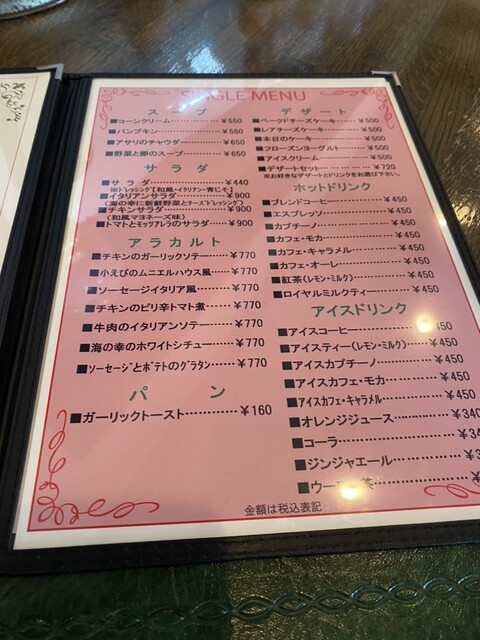 SINGLE MENU
スープ
■コーンクリーム ¥550
■パンプキン ¥550
■アサリのチャウダー ¥650
■野菜と卵のスープ ¥650
サラダ
■サラダ ¥440
※ドレッシング【和風・イタリアン・青じそ】
■イタリアンサラダ ¥900
(海の幸に新鮮野菜とチーズドレッシング)
■チキンサラダ ¥900
(和風マヨネーズ味)
■トマトとモッツアレラのサラダ ¥900
アラカルト
■チキンのガーリックソテー ¥770
■小えびのムニエルハウス風 ¥770
■ソーセージイタリア風 ¥770
■チキンのピリ辛トマト煮 ¥770
■牛肉のイタリアンソテー ¥770
■海の幸のホワイトシチュー ¥770
■ソーセージとポテトのグラタン ¥770
パン
■ガーリックトースト ¥160
デザート
■ベークドチーズケーキ ¥500
■レアチーズケーキ ¥500
■本日のケーキ ¥500
■フローズンヨーグルト ¥500
■アイスクリーム ¥500
■デザートセット ¥720
※お好きなデザートとドリンクをお選び下さい。
ホットドリンク
■ブレンドコーヒー ¥450
■エスプレッソ ¥450
■カプチーノ ¥450
■カフェ・モカ ¥450
■カフェ・キャラメル ¥450
■カフェ・オーレ ¥450
■紅茶(レモン・ミルク) ¥450
■ロイヤルミルクティー ¥450
アイスドリンク
■アイスコーヒー 50
■アイスティー(レモン・ミルク) ¥450
■アイスカプチーノ ¥450
■アイスカフェ・モカ ¥450
■アイスカフェ・キャラメル ¥450
■オレンジジュース ¥340
■コーラ ¥34
■ジンジャエール ¥3
■ウー 茶 ¥
金額は税込表記